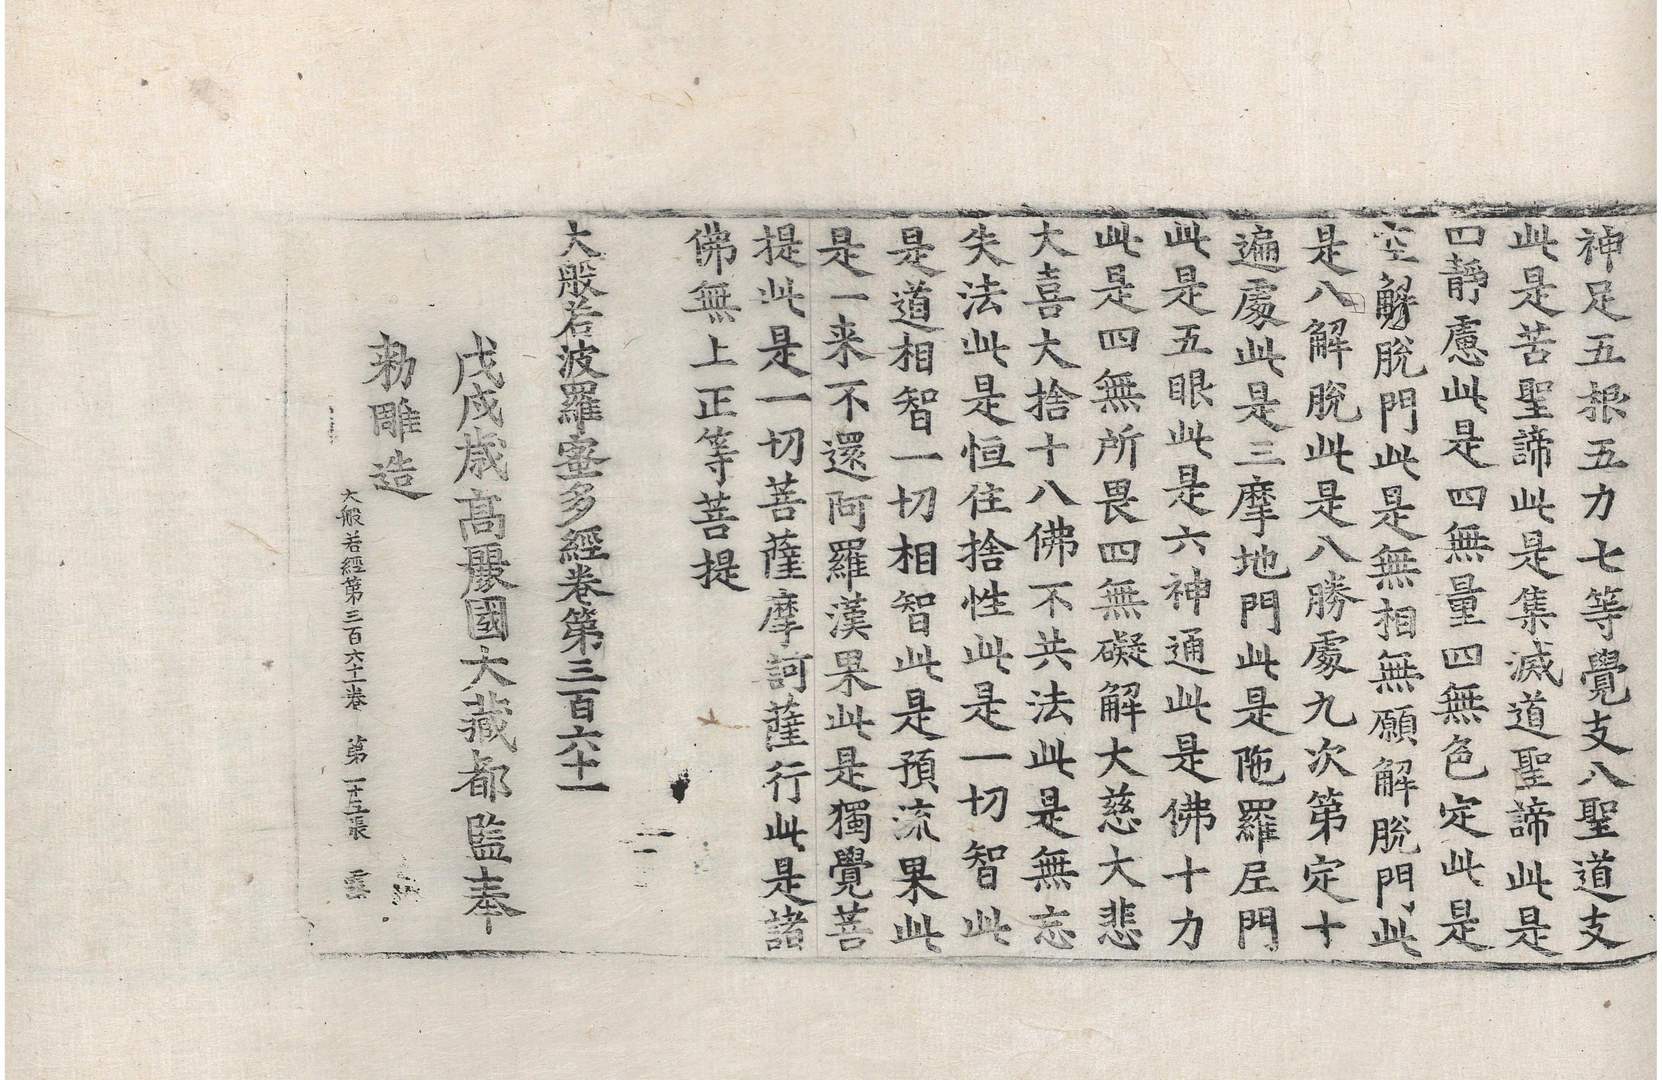 神足五根五力七等覺支八聖道支
此是苦聖諦此是集滅道聖諦此是
四靜慮此是四無量四無色定此是
空解脫門此是無相無願解脫門此
是八解脫此是八勝處九次第定十
遍處此是三摩地門此是陁羅尼門
此是五眼此是六神通此是佛十力
此是四無所畏四無礙解大慈大悲
大喜大捨十八佛不共法此是無忘
失法此是恒住捨性此是一切智此
是道相智一切相智此是預流果此
是一来不還阿羅漢果此是獨覺菩
提此是一切菩薩摩訶薩行此是諸
佛無上正等菩提
大般若波羅蜜多經卷第三百六十一
戊戌歲高麗國大藏都監奉
勑雕造
大般若經第三百六十一卷 第二十五張